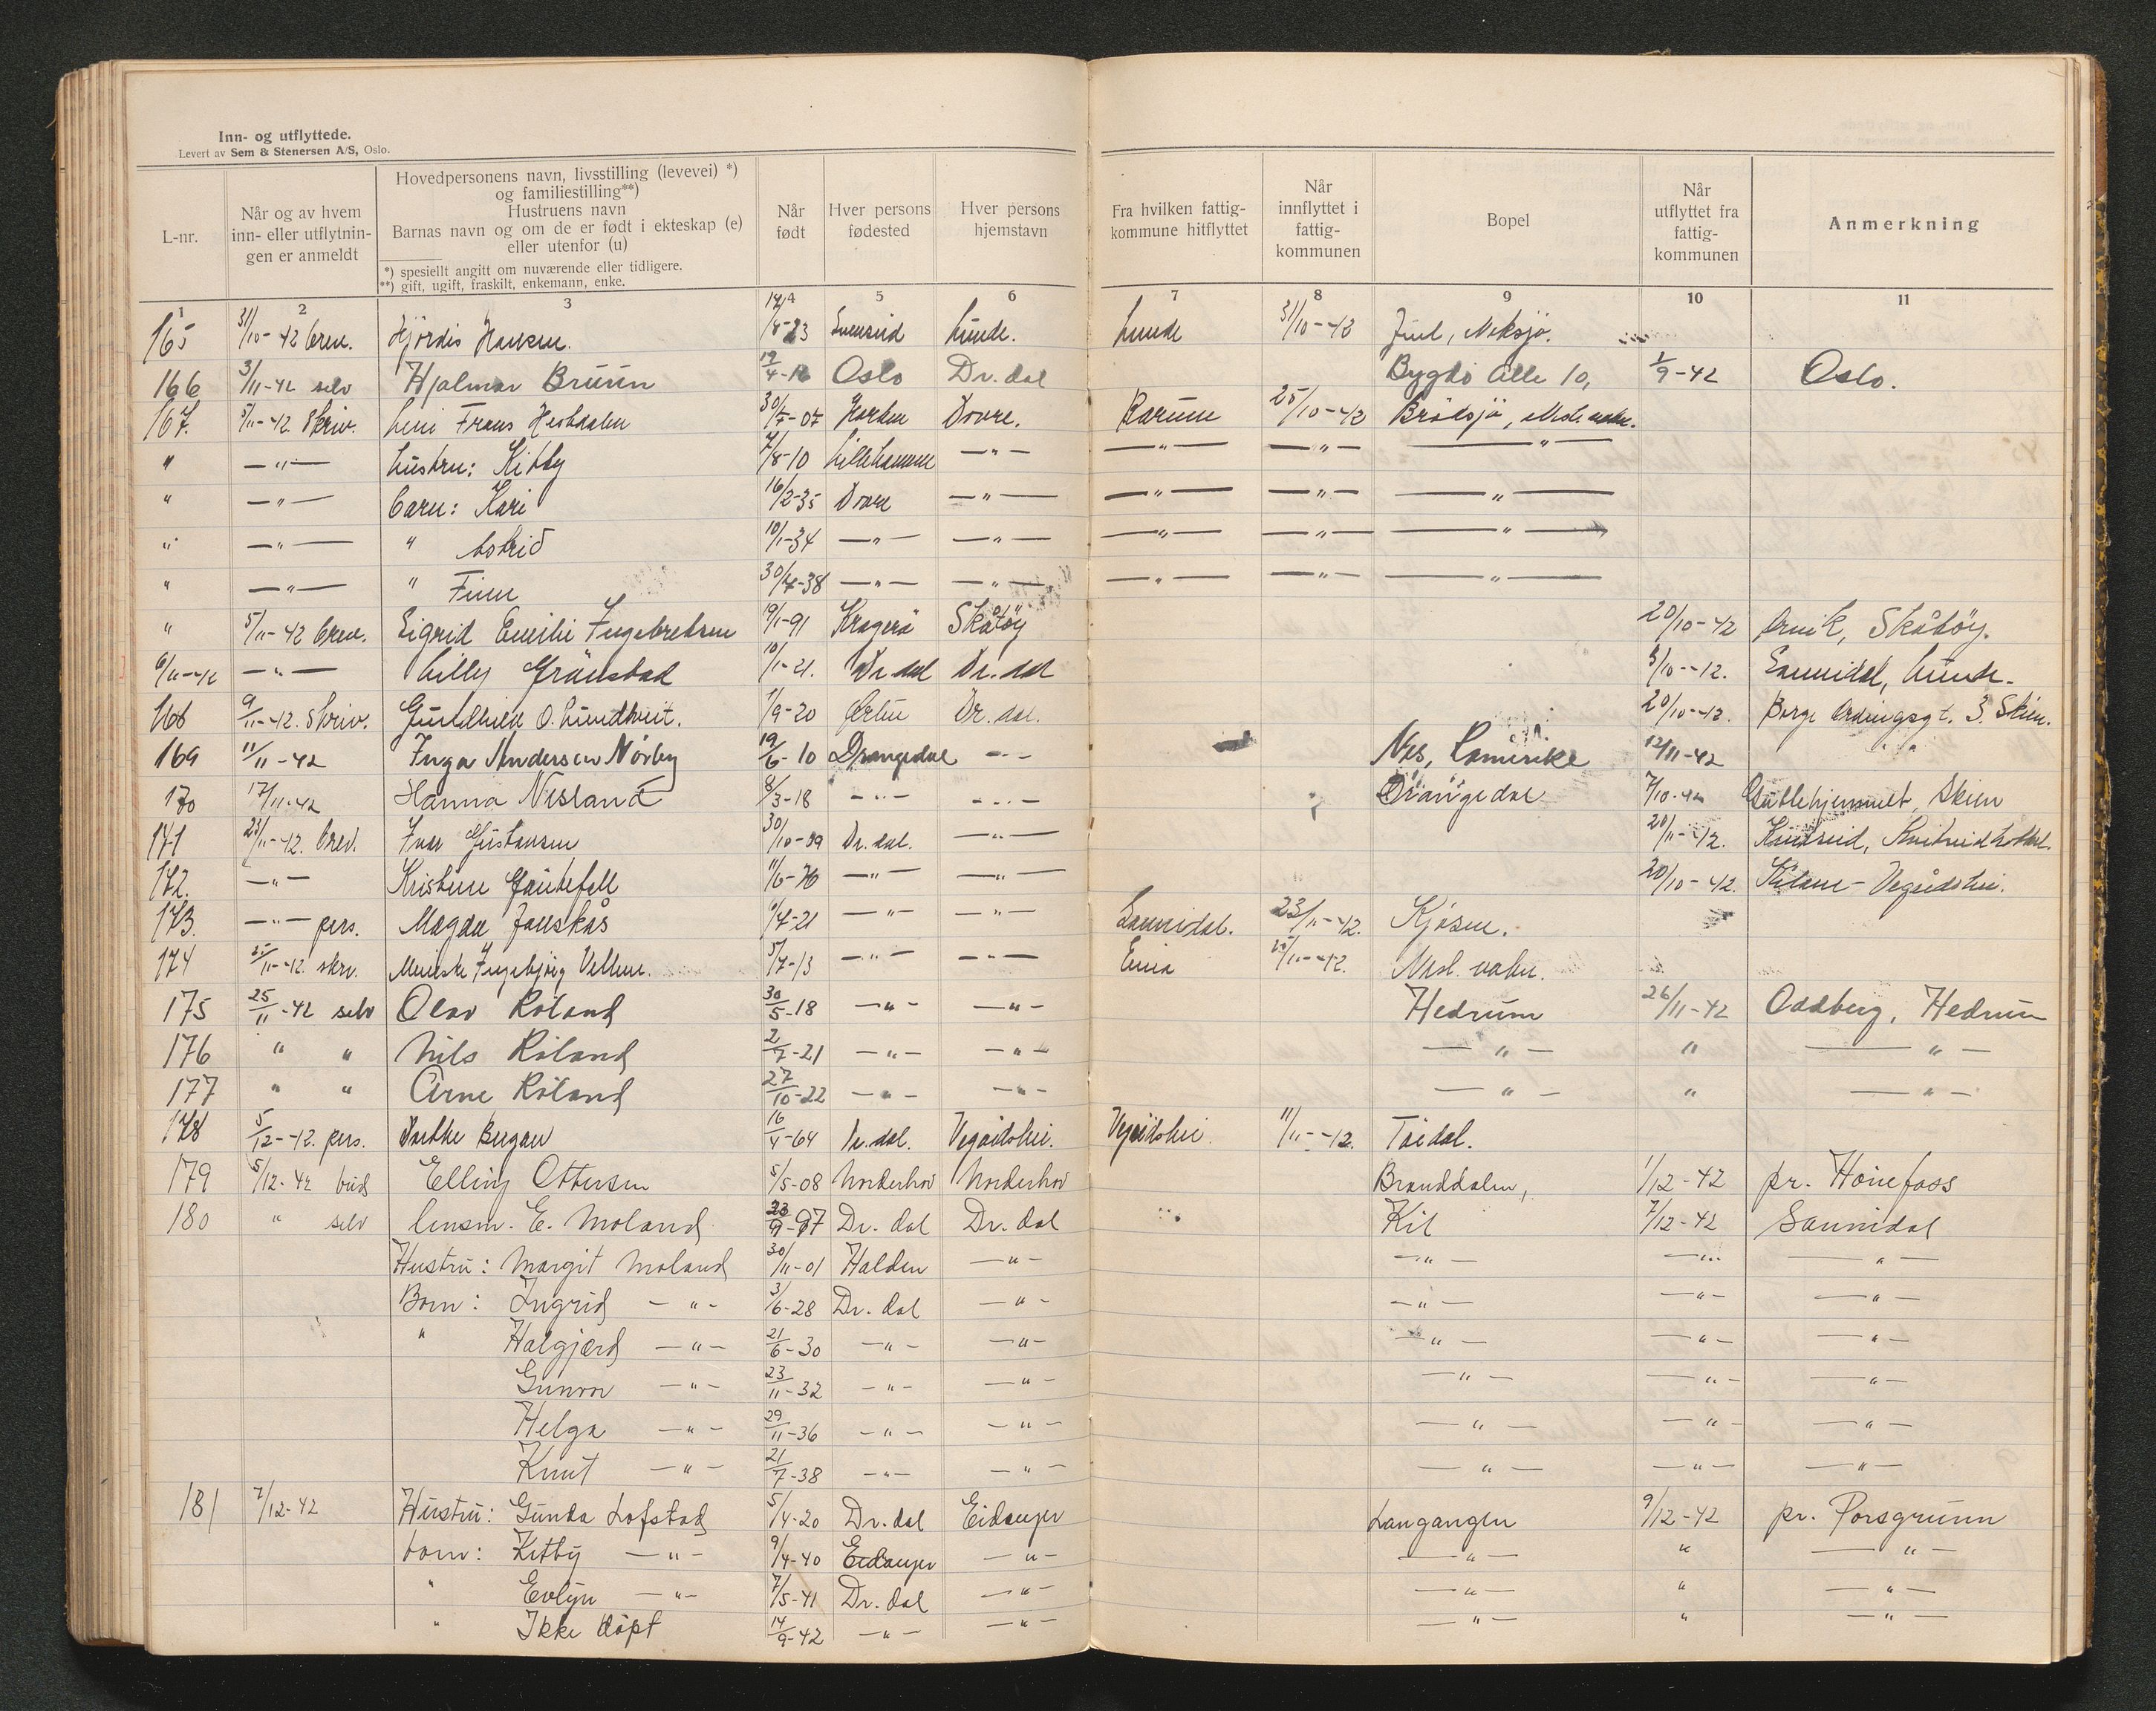 Inn- og utflyttede.
Levert av Sem & Stenersen A/S, Oslo.
L-nr.
Når og av hvem inn- eller utflytnin-gen er anmeldt
Hovedpersonens navn, livsstilling (levevei) *)
og familiestilling**)
Hustruens navn
Barnas navn og om de er født i ekteskap (e)
eller utenfor (u)
*) spesiellt angitt om nuværende eller tidligere.
**) gift, ugift, fraskilt, enkemann, enke.
Når født
Hver persons fødested
Hver persons hjemstavn
Fra hvilken fattig-kommune hitflyttet
Når innflyttet i fattig-kommunen
Bopel
Når utflyttet fra fattig-kommunen
Anmerkning
1 2 3 4 5 6 7 8 9 10 11
165 31/10-42 brev. Hjördis Hansen. 8-23 lunde. lunde 31/10-42
166 3/11-42 selv Hjalmar Bruun 19/4-18 Oslo Dr. dal Bygdö alle 10, 1/9-42 Oslo.
167. 5/11-42. skriv. Frans 30/7-07 Horten Dovre. Bærum 25/10-42
" —"— hustru: Kitty 8-10 Lillehammer —"— —"— —"— —"—
" —"— barn: Kari 16/2-35 Dovre —"— —"— —"— —"—
" —"— " Astrid 10/1-34 —"— —"— —"— —"— —"—
" —"— " Finn 30/4-38 —"— —"— —"— —"— —"—
" 5/11-42 brev. Sigrid Emilie Ingebretsen 19/1-91 Kragerö Skåtöy 20/10-42 Skåtöy.
6/11-42 —"— Lilly Grönstad 10/1-21. Dr. dal Dr. dal 5/10-42. Sannidal, lunde.
168 9/11-42. skriv. Gunhild O. Lundtveit. 1/9-20 Dr. dal. 20/10-42. Skien.
169 11/11-42 Inga Andersen Nørby 19/6-10 Drangedal —"— Nes, Romerike 12/11-42 " "
170 17/11-42 Hanna Nesland 8/3-18 —"— —"— Drangedal 7/10-42 Skien
171 23/11-42. brev. Ivar Gustavsen 30/10-39 Dr. dal. —"— 20/11-42.
172. —"— Kristine Gautefall 11/6-70 —"— —"— 20/10-42. Vegårdshei.
173. —"— pers. Magda 4-21 —"— —"— Sannidal. 23/11-42. Kjosen.
174 25/11-42. skrv. Ingebjörg 5/7-13 —"— —"— Eina 11-42.
175 25/11-42 selv Olav Röland 30/5-18 —"— —"— Hedrum 26/11-42 Oddberg, Hedrum
176 " " Nils Röland 2/7-21 —"— —"— —"— " —"—
177 " " Arne Röland 27/10-22 —"— —"— —"— " —"—
178 5/12-42. pers. Bergan 16/4-64 Dr. dal. Vegårdshei. Vegårdshei. 11/11-42. Tördal.
179 5/12-42 bud Elling Ottersen 5/5-08 Norderhov Norderhov Branddalen, 1/12-42 pr. Hönefoss
180 " selv lensm. E. Moland 23/9-97 Dr. dal Dr. dal Kil 7/12-42 Sannidal
Hustru: Margit Moland 30/11-01 Halden —"— —"— —"— —"—
Born: Ingrid —"— 3/6-28 Dr. dal —"— —"— —"— —"—
" Halgjerd —"— 21/6-30 —"— —"— —"— —"— —"—
Gunvor —"— 23/11-32 —"— —"— —"— —"— —"—
Helga —"— 29/11-36 —"— —"— —"— —"— —"—
Knut —"— 21/7-38 —"— —"— —"— —"— —"—
181 7/12-42 Hustru: Gunda Lofstad 5/4-20 Dr. dal Eidanger Langangen 9/12-42 pr. Porsgrunn
born: Kitty —"— 9/4-40 Eidanger —"— —"— " —"—
" Evlyn —"— 7/5-41 Dr. dal —"— —"— " —"—
" Ikke döpt 14/9-42 —"— —"— —"— " —"—